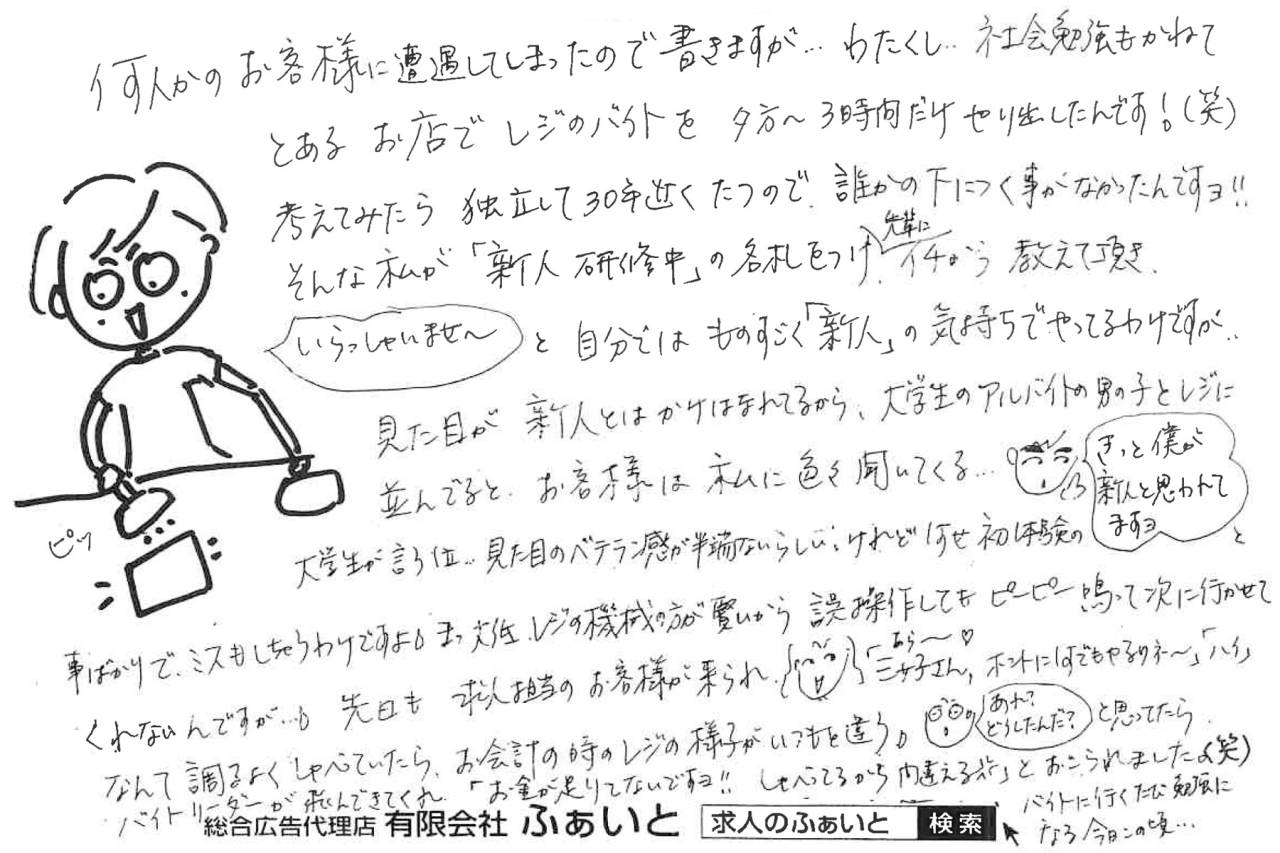 何人かのお客様に遭遇してしまったので書きますが… わたくし… 社会勉強もかねて
とある お店で レジのバイトを 夕方〜3時間だけ やり出したんです!(笑)
考えてみたら 独立して30年近くたつので、誰かの下につく事がなかったんですヨ!!
そんな私が「新人 研修中」の名札をつけ、先輩に イチから 教えて頂き、
いらっしゃいませ〜
と 自分では ものすごく「新人」の気持ちでやってるわけですが‥
見た目が 新人とはかけはなれてるから、大学生のアルバイトの男の子とレジに
並んでると、お客様は 私に色々聞いてくる…
きっと僕が
新人と思われて
ますヨ
と
大学生が言う位… 見た目のベテラン感が半端ないらしい。けれど なせ 初体験の
ピッ
事ばかりで、ミスもしちゃうわけですよ。まっ大体、レジの機械の方が賢いから 誤操作しても ピーピー 鳴って次に行かせて
くれないんですが…。 先日も 求人担当の お客様が来られ、「あら〜♡三好さん、ホントに何でもやるわネ〜」「ハイ」
なんて 調子よく しゃべっていたら、お会計の時のレジの様子がいつもと違う。
あれ?
どうしたんだ?
と思ってたら
バイトリーダーが飛んできてくれ、「お金が足りてないですヨ!! しゃべってるから間違える」とおこられました(笑)
バイトに行くたび勉強に
なる今日この頃…
総合広告代理店 有限会社 ふぁいと 求人のふぁいと 検索